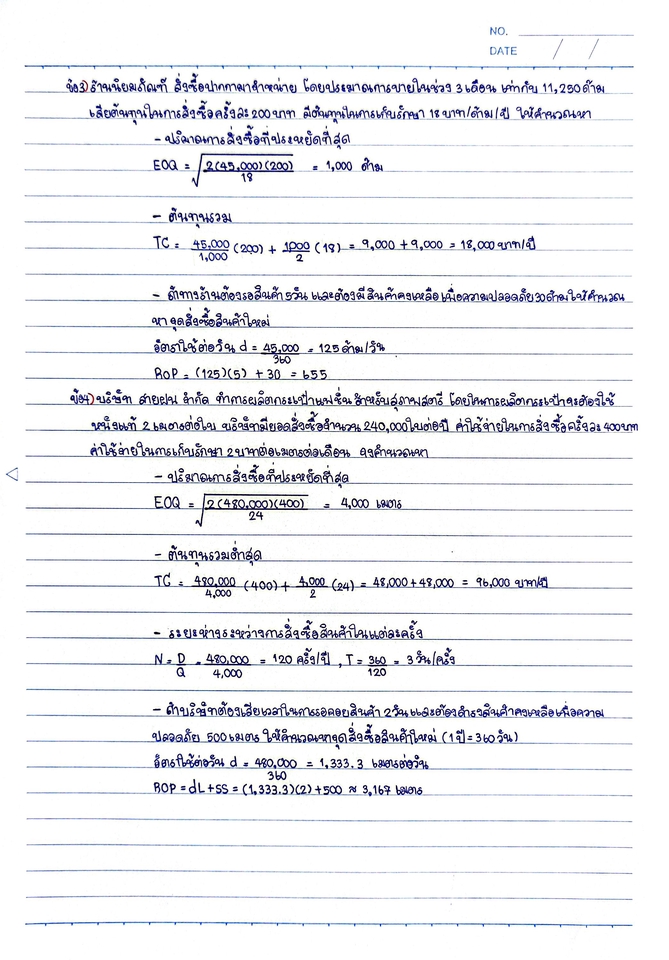 NO.
DATE / /
ข้อ3) ร้านนิยมภัณฑ์ สั่งซื้อปากกามาจำหน่าย โดยประมาณการขายในช่วง 3 เดือน เท่ากับ 11,250 ด้าม
เสียต้นทุนในการสั่งซื้อครั้งละ 200 บาท มีต้นทุนในการเก็บรักษา 18 บาท/ด้าม/ปี ให้คำนวณหา
- ปริมาณการสั่งซื้อที่ประหยัดที่สุด
EOQ = √(2(45,000)(200) / 18) = 1,000 ด้าม
- ต้นทุนรวม
TC = 45,000/1,000 (200) + 1000/2 (18) = 9,000 + 9,000 = 18,000 บาท/ปี
- ถ้าทางร้านต้องรอสินค้า 5 วัน และต้องมีสินค้าคงเหลือเพื่อความปลอดภัย 30 ด้าม ให้คำนวณ
หาจุดสั่งซื้อสินค้าใหม่
อัตราใช้ต่อวัน d = 45,000/360 = 125 ด้าม/วัน
ROP = (125)(5) + 30 = 655
ข้อ4) บริษัท สายฝน จำกัด ทำการผลิตกระเป๋าแฟชั่นสำหรับสุภาพสตรี โดยในการผลิตกระเป๋าจะต้องใช้
หนังแท้ 2 เมตรต่อใบ บริษัทมียอดสั่งซื้อจำนวน 240,000 ใบต่อปี ค่าใช้จ่ายในการสั่งซื้อครั้งละ 400 บาท
ค่าใช้จ่ายในการเก็บรักษา 2 บาทต่อเมตรต่อเดือน จงคำนวณหา
- ปริมาณการสั่งซื้อที่ประหยัดที่สุด
EOQ = √(2(480,000)(400) / 24) = 4,000 เมตร
- ต้นทุนรวมต่ำสุด
TC = 480,000/4,000 (400) + 4,000/2 (24) = 48,000 + 48,000 = 96,000 บาท/ปี
- ระยะห่างระหว่างการสั่งซื้อสินค้าในแต่ละครั้ง
N = D/Q = 480,000/4,000 = 120 ครั้ง/ปี , T = 360/120 = 3 วัน/ครั้ง
- ถ้าบริษัทต้องเสียเวลาในการรอคอยสินค้า 2 วัน และต้องดำรงสินค้าคงเหลือเพื่อความ
ปลอดภัย 500 เมตร ให้คำนวณหาจุดสั่งซื้อสินค้าใหม่ (1 ปี = 360 วัน)
อัตราใช้ต่อวัน d = 480,000/360 = 1,333.3 เมตรต่อวัน
ROP = dL + SS = (1,333.3)(2) + 500 ≈ 3,167 เมตร